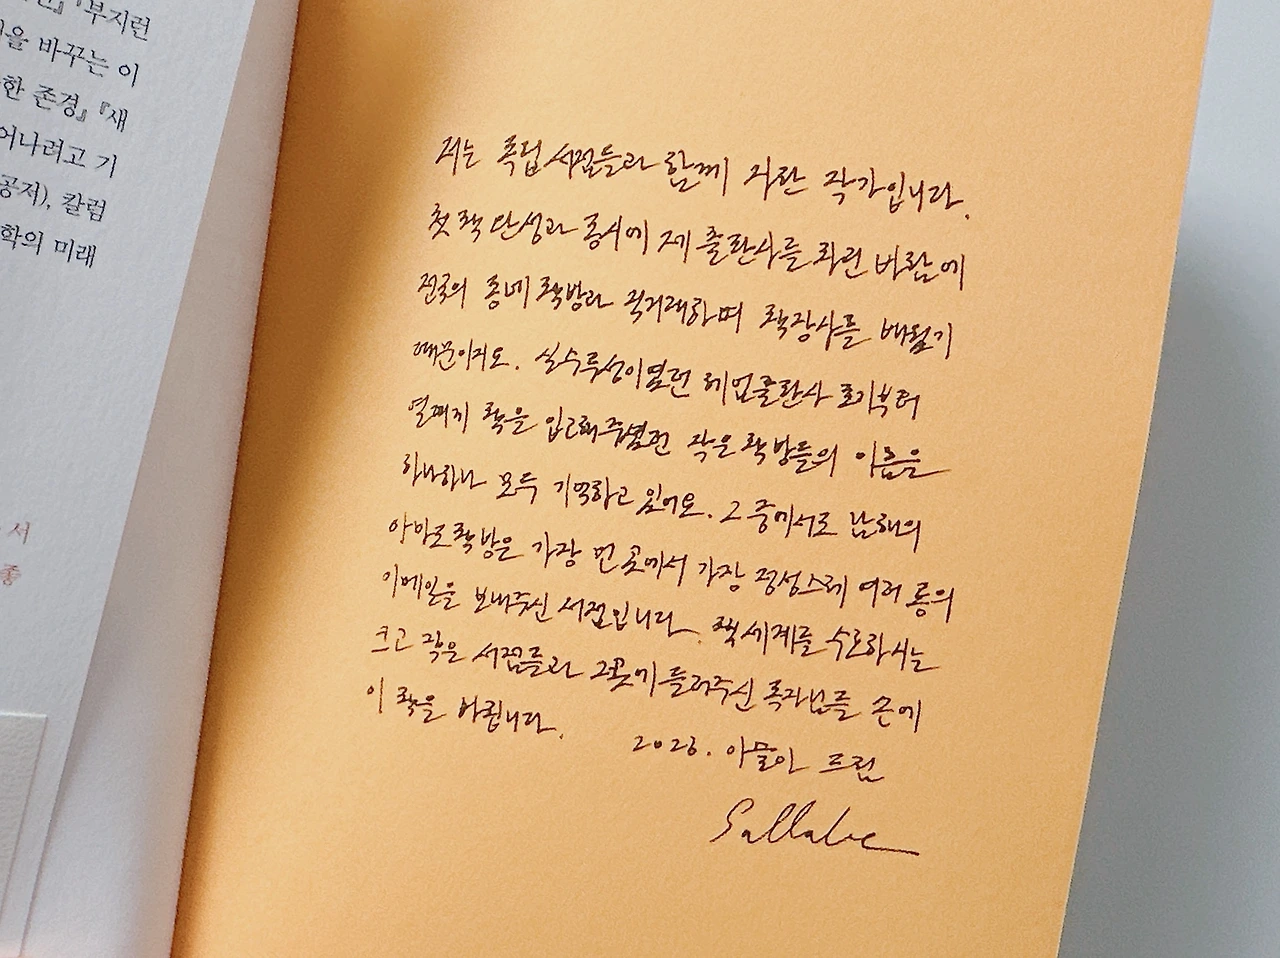 『부지런
을 바꾸는 이
한 존경』 『새
어나려고 기
공저), 칼럼
학의 미래
서
좋
저는 독립 서점들과 함께 자란 작가입니다.
첫 책 탄생과 동시에 제 출판사를 차린 바람에
전국의 동네 책방과 직거래하며 책장사를 배웠기
때문이지요. 실수투성이였던 헤엄출판사 초기부터
열까지 책을 입고해주셨던 작은 책방들의 이름을
하나하나 모두 기억하고 있어요. 그 중에서도 남해의
아마도책방은 가장 먼 곳에서 가장 정성스레 여러 통의
이메일을 보내주신 서점입니다. 책 세계를 수호하시는
크고 작은 서점들과 그곳에 들러주신 독자님들 손에
이 책을 바칩니다.
2023. 이슬아 드림
Sullalee